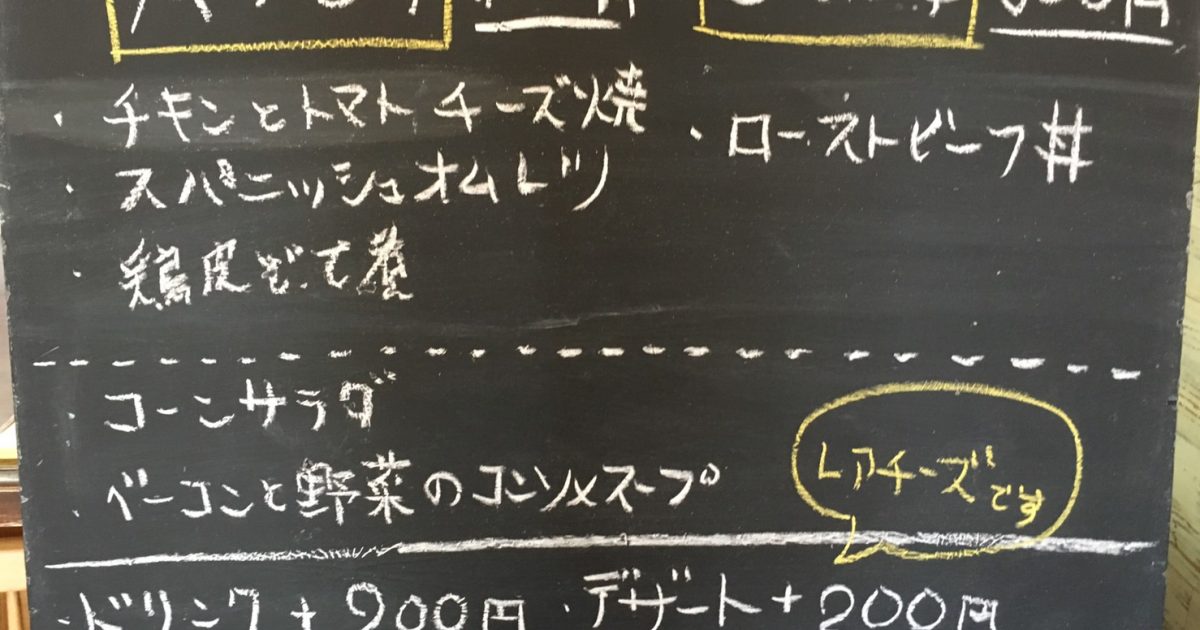 ・チキンとトマトチーズ焼
・スパニッシュオムレツ
・鶏皮どて巻
・ローストビーフ丼
・コーンサラダ
・ベーコンと野菜のコンソメスープ
レアチーズです
・ドリンク+200円 ・デザート+200円